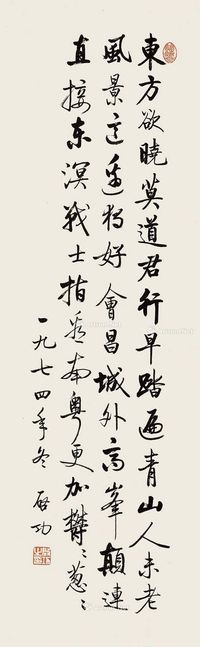 東方欲曉莫道君行早踏遍青山人未老
風景這邊獨好會昌城外高峯顛連
直接东溟战士指看南粤更加鬱〻葱〻
一九七四年冬 启功